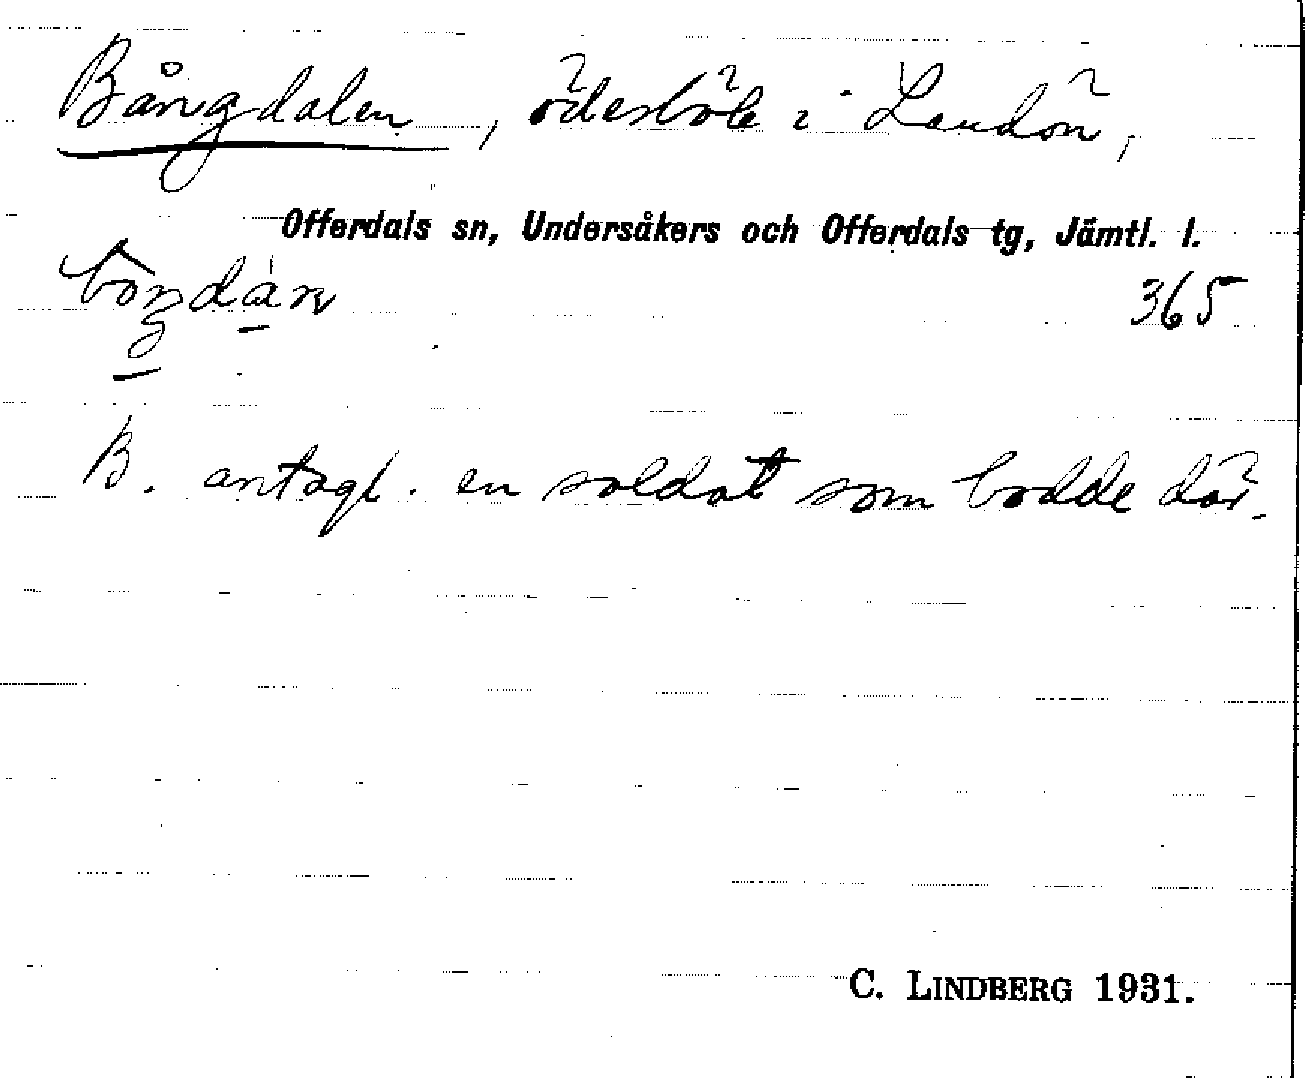 Bångdalen, ödesböle i Landön,
Offerdals sn, Undersåkers och Offerdals tg, Jämtl. l.
365
B. antagl. en soldat som bodde där.
C. LINDBERG 1931.